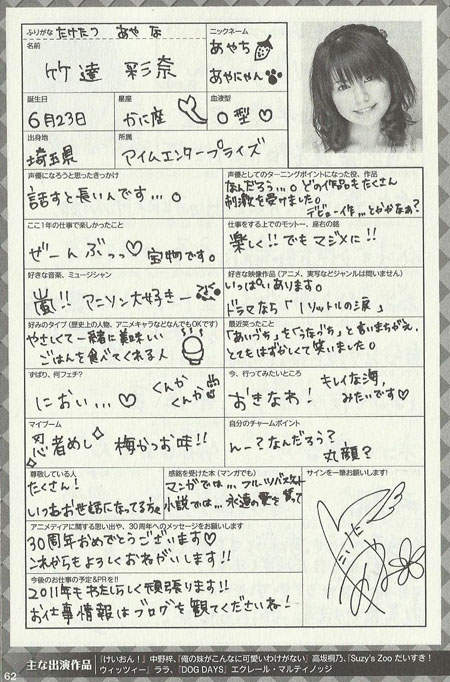 ふりがな たけたつ あやな
ニックネーム
名前
竹達 彩奈
あやち
あやにゃん
誕生日
6月23日
星座
かに座
血液型
O型♡
出身地
埼玉県
所属
アイムエンタープライズ
声優になろうと思ったきっかけ
話すと長いんです…。
声優としてのターニングポイントになった役、作品
なんだろう…。どの作品もたくさん
刺激を受けました。
デビュー作…とかかなぁ?
ここ1年の仕事で楽しかったこと
ぜーんぶっっ♡宝物です。
仕事をする上でのモットー、座右の銘
楽しく!!でもマジメに!!
好きな音楽、ミュージシャン
嵐!!アニソン大好きー
好きな映像作品(アニメ、実写などジャンルは問いません)
いっぱいあります。
ドラマなら「1リットルの涙」
好みのタイプ(歴史上の人物、アニメキャラなどなんでもOKです)
やさしくて一緒に美味しい
ごはんを食べてくれる人
最近笑ったこと
「あいづち」を「うなづち」と言いまちがえ、
とてもはずかしくて笑いました。
ずばり、何フェチ?
におい…♡
くんか
くんか
今、行ってみたいところ
おきなわ!
キレイな海、
みたいです♡
マイブーム
忍者めし 梅かつお味!!
自分のチャームポイント
んー?なんだろう?
丸顔?
尊敬している人
たくさん!
いつもお世話になってる方々
感銘を受けた本(マンガでも)
マンガでは…フルーツバスケット
小説では…永遠の愛を誓って
サインを一筆お願いします!
アニメディアに関する思い出や、30周年へのメッセージをお願いします
30周年おめでとうございます♡
これからもよろしくおねがいします!!
今後のお仕事の予定&PRを!!
2011年もわたしらしく頑張ります!!
お仕事情報はブログを観てくださいね!
主な出演作品
『けいおん!』中野梓、『俺の妹がこんなに可愛いわけがない』高坂桐乃、『Suzy's Zoo だいすき!
ウィッツィー』ララ、『DOG DAYS』エクレール・マルティノッジ
62